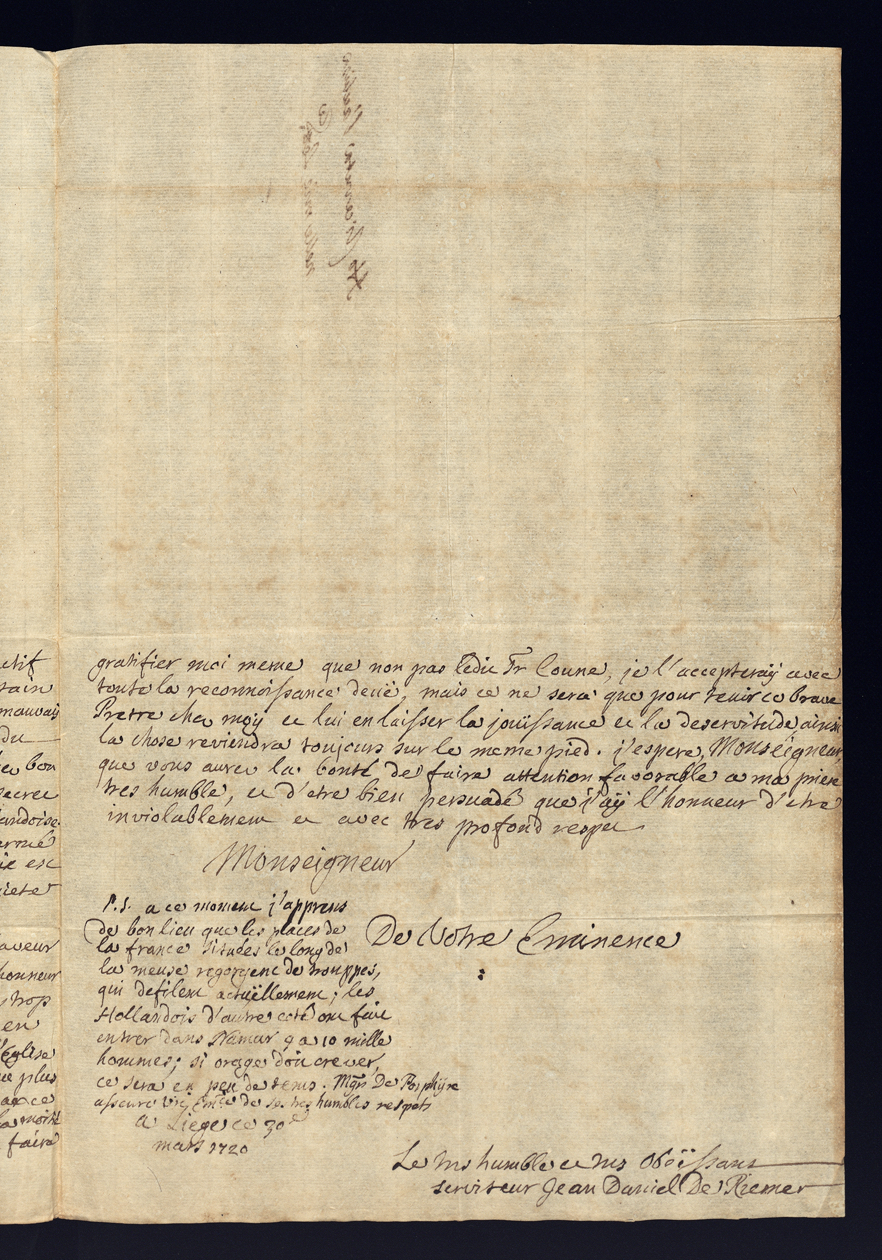 gratifier moi meme que non pas ledit Fr Coune, je l'accepteraÿ avec
toute la reconnoissance deüe, mais ce ne sera que pour tenir ce brave
Pretre chez moÿ et lui en laisser la joüissance et la deservitude ainsi
la chose reviendra toujours sur le meme pied. j'espere, Monseigneur,
que vous aurez la bonté de faire attention favorable a ma priere
tres humble, et d'etre bien persuadé que j'aÿ l'honneur d'etre
inviolablement et avec tres profond respet
Monseigneur
De Votre Eminence
P.S. a ce moment j'apprens
de bon lieu que les places de
la france situées le long de
la meuse regorgent de trouppes,
qui defilent actuëllement; les
Hollandois d'autre coté ont fait
entrer dans Namur ça 10 mille
hommes; si orage doit crever,
ce sera en peu de tems. Mgr De Porphire
asseure Vre Emce de ses tres humbles respets
a Liege ce 30e
mars 1720
Le tres humble et tres Oboëissant
serviteur Jean Daniel De Riemer
etif
tain
mauvais
du
bon
secret
landoise
armé
est
piete
faveur
honneur
trop
en
l'Eglise
plus
la moitié
faire